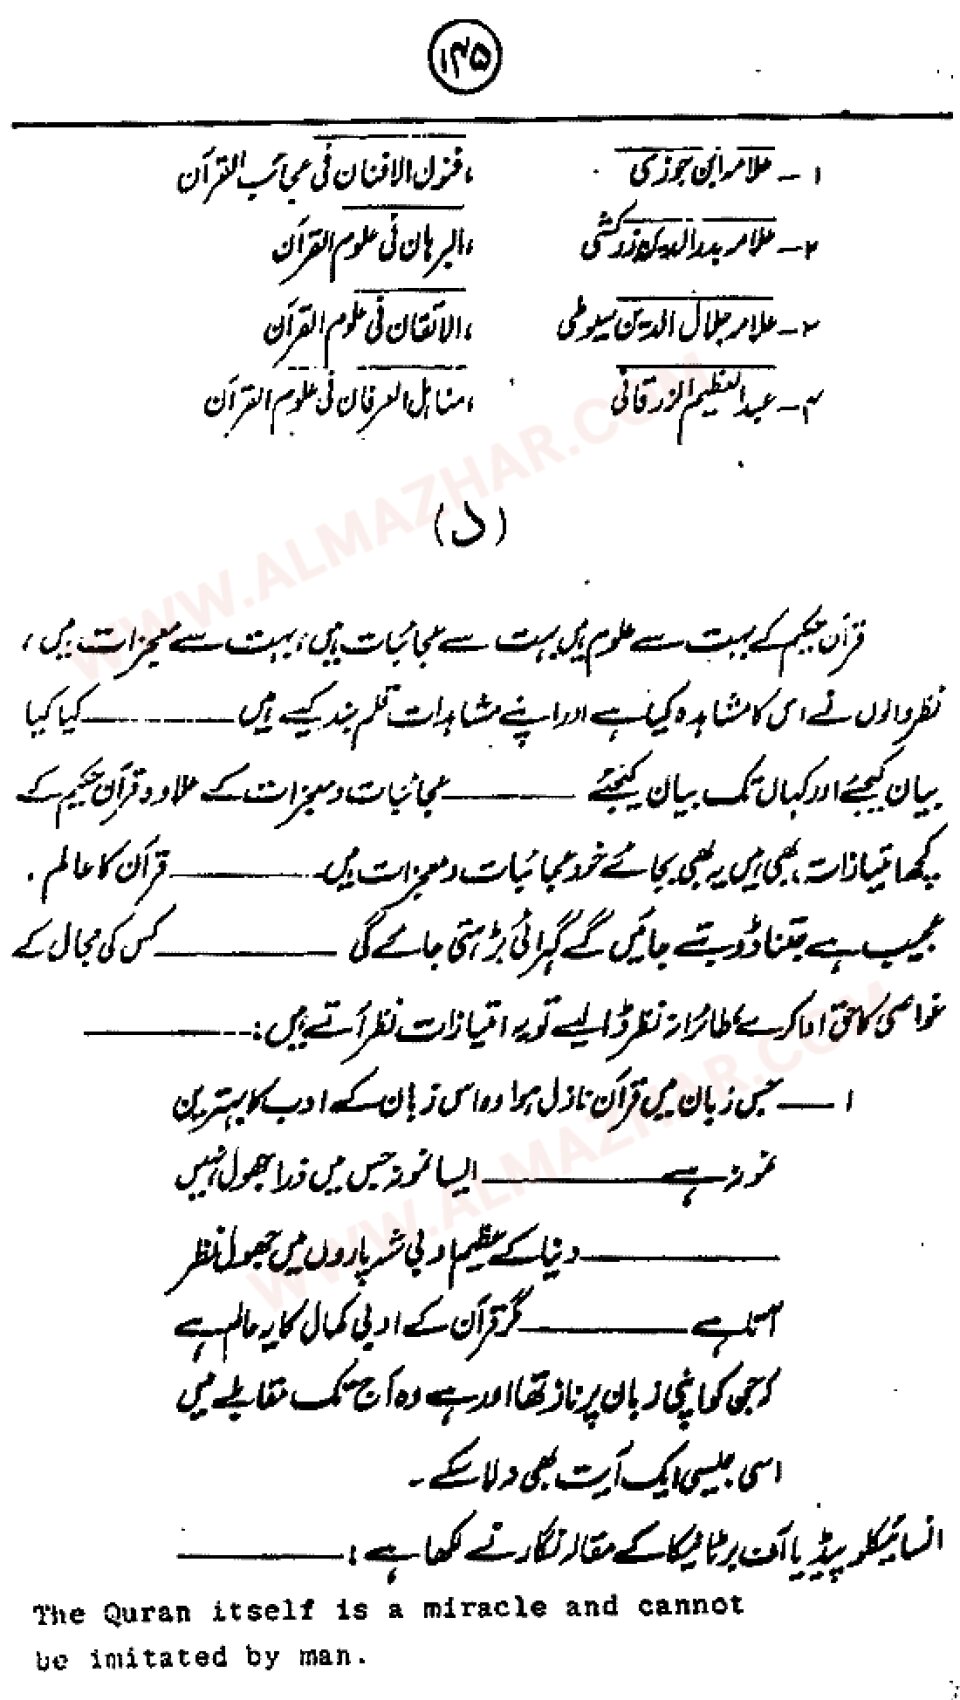 ۱۴۵
۱ - علامہ ابن جوزی ، فنون الافنان فی عجائب القرآن
۲ - علامہ بدرالدین زرکشی ، البرہان فی علوم القرآن
۳ - علامہ جلال الدین سیوطی ، الاتقان فی علوم القرآن
۴ - عبدالعظیم الزرقانی ، مناہل العرفان فی علوم القرآن
(د)
قرآن حکیم کے بہت سے علوم ہیں بہت سے عجائبات ہیں، بہت سے معجزات ہیں،
نظر والوں نے اس کا مشاہدہ کیا ہے اور اپنے مشاہدات قلم بند کیے ہیں ——— کیا کیا
بیان کیجئے اور کہاں تک بیان کیجئے ——— عجائبات و معجزات کے علاوہ قرآن حکیم کے
کچھ امتیازات بھی ہیں یہ بھی بجائے خود عجائبات و معجزات ہیں ——— قرآن کا عالم
عجیب ہے جتنا ڈوبتے جائیں گے گہرائی بڑھتی جائے گی ——— کس کی مجال کے
غواصی کا حق ادا کرے، طائرانہ نظر ڈالیے تو یہ امتیازات نظر آتے ہیں: ———
۱ — جس زبان میں قرآن نازل ہوا وہ اس زبان کے ادب کا بہترین
نمونہ ہے ——— ایسا نمونہ جس میں ذرا جھول نہیں
——— دنیا کے عظیم ادبی شہ پاروں میں جھول نظر
آتا ہے ——— مگر قرآن کے ادبی کمال کا یہ عالم ہے
کہ جن کو اپنی زبان پر ناز تھا اور ہے وہ آج تک مقابلے میں
اس جیسی ایک آیت بھی نہ لا سکے ۔
انسائیکلوپیڈیا آف برٹانیکا کے مقالہ نگار نے لکھا ہے: ———
The Quran itself is a miracle and cannot
be imitated by man.
WWW.ALMAZHAR.COM
WWW.ALMAZHAR.COM